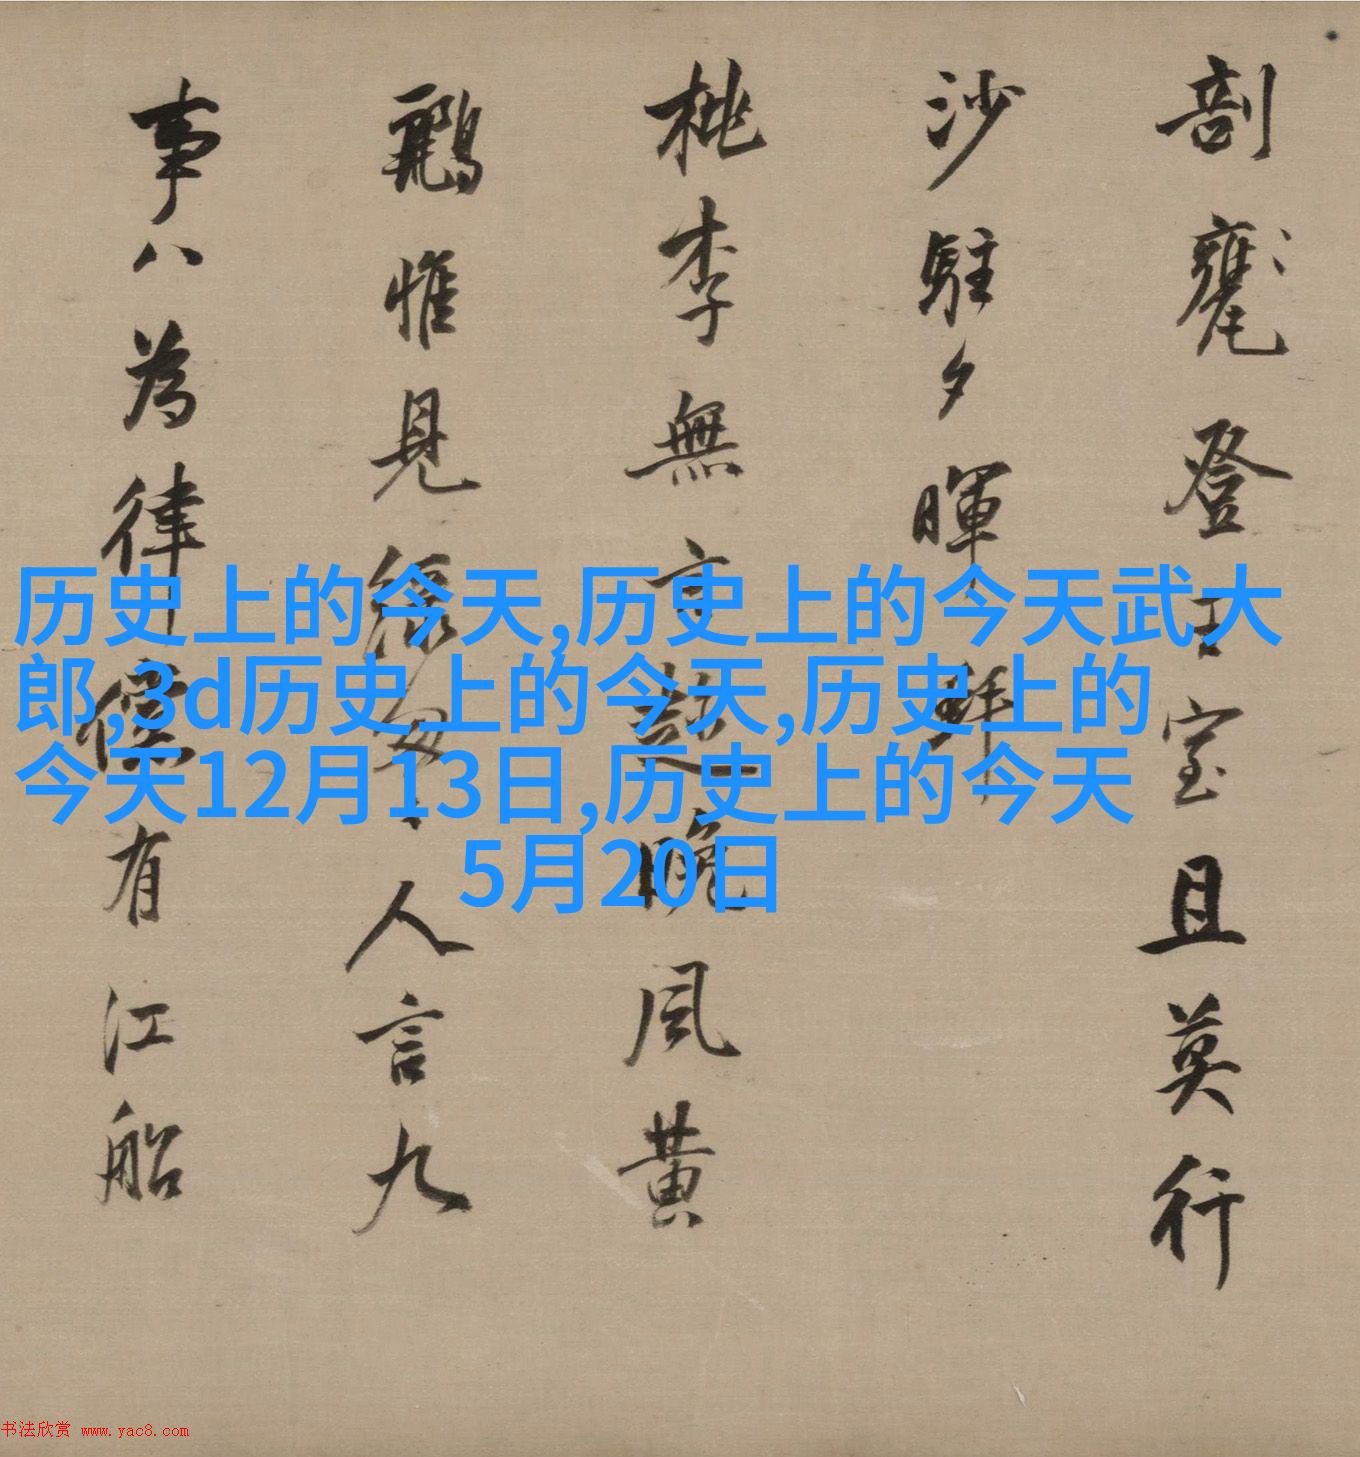 剖甕登室且莫行
沙駐夕暉拜
桃李無言晚風黃
鸝惟見綠人言九
事八為律有江船
历史上的今天,历史上的今天武大
郎,3d历史上的今天,历史上的
今天12月13日,历史上的今天
5月20日
书法欣赏 www.yac8.com